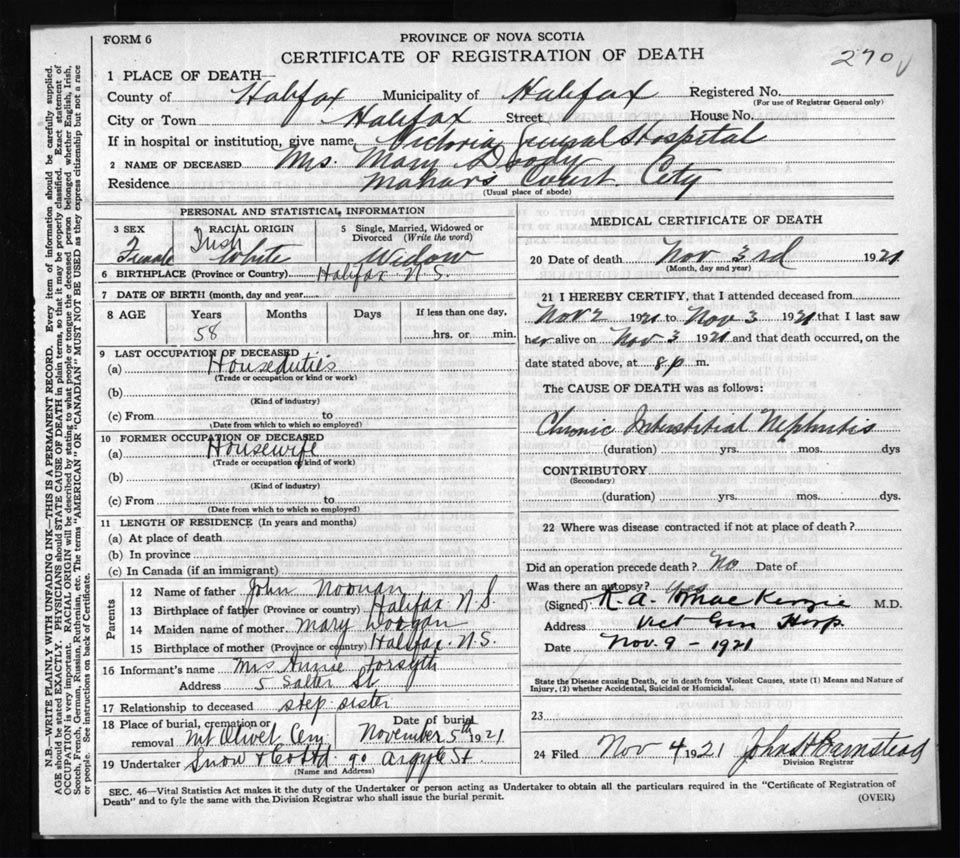 FORM 6
PROVINCE OF NOVA SCOTIA
CERTIFICATE OF REGISTRATION OF DEATH
270
1 PLACE OF DEATH—
County of Halifax Municipality of Halifax Registered No.
(For use of Registrar General only)
City or Town Halifax Street House No.
If in hospital or institution, give name, Victoria General Hospital
2 NAME OF DECEASED Mrs. Mary Doody
Residence Mahar's Court. City
(Usual place of abode)
PERSONAL AND STATISTICAL INFORMATION
3 SEX Female
RACIAL ORIGIN Irish White
5 Single, Married, Widowed or Divorced (Write the word) Widow
6 BIRTHPLACE (Province or Country) Halifax N.S.
7 DATE OF BIRTH (month, day and year)
8 AGE Years Months Days If less than one day,
58 hrs. or min.
9 LAST OCCUPATION OF DECEASED
(a) Houseduties
(Trade or occupation or kind or work)
(b)
(Kind of industry)
(c) From to
(Date from which to which so employed)
10 FORMER OCCUPATION OF DECEASED
(a) Housewife
(Trade or occupation or kind of work)
(b)
(Kind of industry)
(c) From to
(Date from which to which so employed)
11 LENGTH OF RESIDENCE (In years and months)
(a) At place of death
(b) In province
(c) In Canada (if an immigrant)
Parents
12 Name of father John Noonan
13 Birthplace of father (Province or country) Halifax N.S
14 Maiden name of mother Mary
15 Birthplace of mother (Province or country) Halifax N.S.
16 Informant's name Mrs Annie Forsyth
Address 5 Salter St
17 Relationship to deceased step sister
18 Place of burial, cremation or removal Mt Olivet Cem
Date of burial November 5th 1921
19 Undertaker Snow & Co Ltd 90 Argyle St.
(Name and Address)
MEDICAL CERTIFICATE OF DEATH
20 Date of death Nov 3rd 1921
(Month, day and year)
21 I HEREBY CERTIFY, that I attended deceased from
Nov 2 1921 to Nov 3 1921 that I last saw
her alive on Nov 3 1921 and that death occurred, on the
date stated above, at 8 p. m.
The CAUSE OF DEATH was as follows:
Chronic Interstitial Nephritis
(duration) yrs. mos. dys
CONTRIBUTORY
(Secondary)
(duration) yrs. mos. dys.
22 Where was disease contracted if not at place of death?
Did an operation precede death? No Date of
Was there an autopsy? Yes
(Signed) MacKenzie M.D.
Address Vict Gen Hosp.
Date Nov. 9 - 1921
State the Disease causing Death, or in death from Violent Causes, state (1) Means and Nature of
Injury, (2) whether Accidental, Suicidal or Homicidal.
23
24 Filed Nov 4 1921 John H Barnstead
Division Registrar
SEC. 46—Vital Statistics Act makes it the duty of the Undertaker or person acting as Undertaker to obtain all the particulars required in the "Certificate of Registration of
Death" and to fyle the same with the Division Registrar who shall issue the burial permit.
(OVER)
N.B.—WRITE PLAINLY WITH UNFADING INK—THIS IS A PERMANENT RECORD. Every item of information should be carefully supplied.
AGE should be stated EXACTLY. PHYSICIANS should STATE CAUSE OF DEATH in plain terms, so that it may be properly classified. Exact statement of
OCCUPATION is very important. RACIAL ORIGIN will be described by stating to what people or tongue the deceased person belonged, whether English, Irish,
Scotch, French, German, Russian, Ruthenian, etc. The terms "AMERICAN" OR "CANADIAN" MUST NOT BE USED as they express citizenship but not a race
or people. See instructions on back of Certificate.